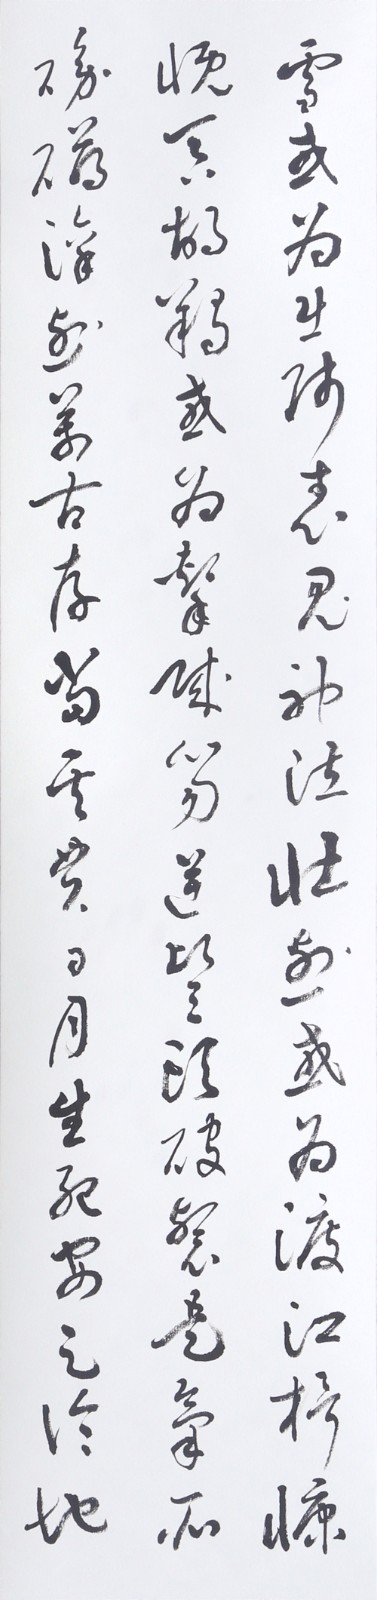 雪或為出師表鬼神泣壯烈或為渡江楫慷
慨吞胡羯或為擊賊笏逆豎頭破裂是氣所
磅礴凜烈萬古存當其貫日月生死安足論地